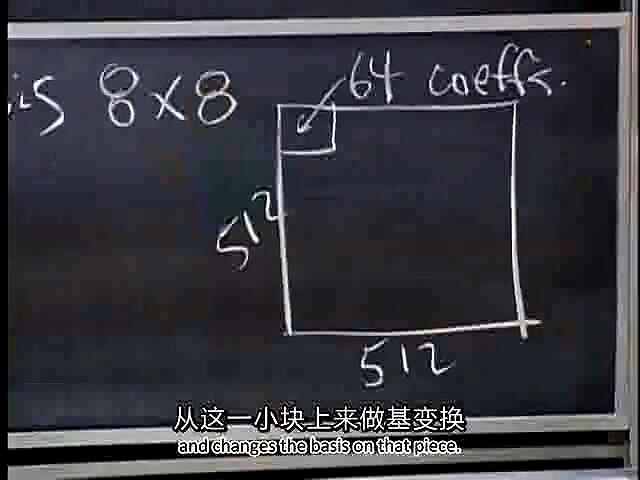 8×8
64 coeffs.
512
512
从这一小块上来做基变换
and changes the basis on that piece.